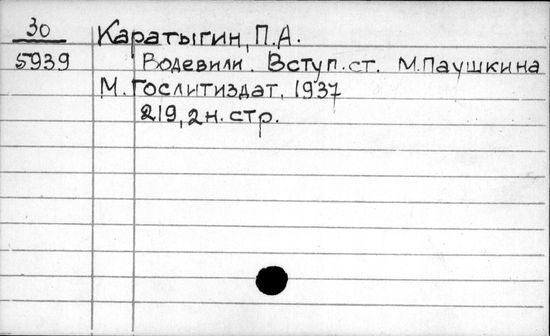 30 Каратыгин, П.А.
5939 Водевили. Вступ. ст. М.Паушкина
М. Гослитиздат, 1937
219, 2 н. стр.